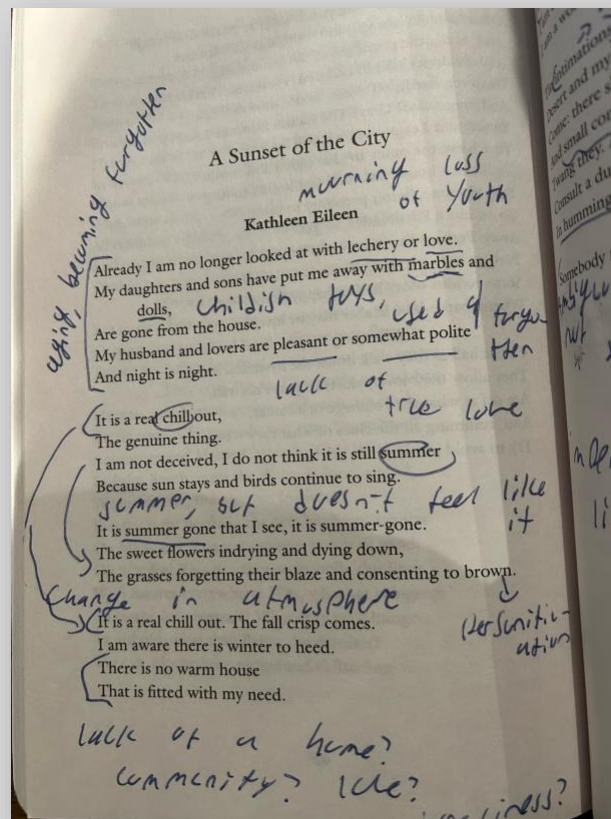 A Sunset of the City
mourning loss
of youth
Kathleen Eileen
aging, becoming forgotten
Already I am no longer looked at with lechery or love.
My daughters and sons have put me away with marbles and
dolls,
childish toys, used & forgotten
Are gone from the house.
My husband and lovers are pleasant or somewhat polite
And night is night.
lack of
true love
It is a real chill out,
The genuine thing.
I am not deceived, I do not think it is still summer
Because sun stays and birds continue to sing.
summer, but doesn't feel like
it
It is summer gone that I see, it is summer-gone.
The sweet flowers indrying and dying down,
The grasses forgetting their blaze and consenting to brown.
change in atmosphere
personification
It is a real chill out. The fall crisp comes.
I am aware there is winter to heed.
There is no warm house
That is fitted with my need.
lack of a home?
community?
I am a wo
intimations
Desert and my
Come: there s
And small con
Twang they.
Consult a du
In humming
Somebody